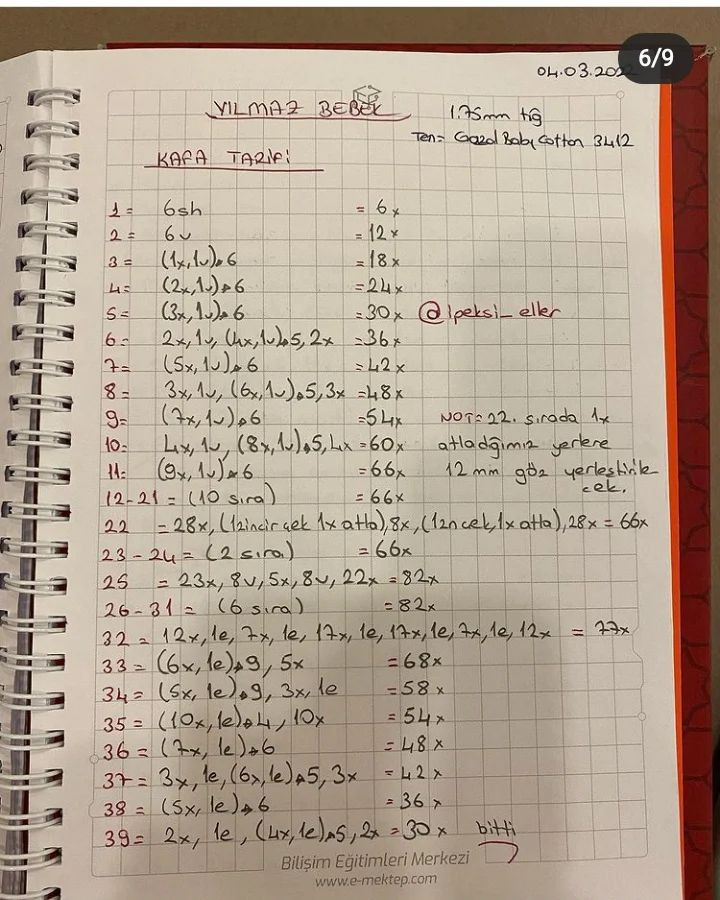 6/9
04.03.2022
YILMAZ BEBEK
1.75mm tığ
Ten= Gazal Baby Cotton 3412
KAFA TARİFİ
1= 6sh = 6x
2= 6v = 12x
3= (1x,1v)*6 = 18x
4= (2x,1v)*6 = 24x
5= (3x,1v)*6 = 30x @ipeksi_eller
6= 2x,1v,(4x,1v)*5,2x = 36x
7= (5x,1v)*6 = 42x
8= 3x,1v,(6x,1v)*5,3x = 48x
9= (7x,1v)*6 = 54x NOT= 22. sırada 1x
10= 4x,1v,(8x,1v)*5,4x = 60x atladığımız yerlere
11= (9x,1v)*6 = 66x 12 mm göz yerleştirile
cek.
12-21 = (10 sıra) = 66x
22 = 28x,(1zincir çek 1x atla),8x,(1zn çek,1x atla),28x = 66x
23-24 = (2 sıra) = 66x
25 = 23x,8v,5x,8v,22x = 82x
26-31 = (6 sıra) = 82x
32 = 12x,1e,7x,1e,17x,1e,17x,1e,7x,1e,12x = 77x
33 = (6x,1e)*9, 5x = 68x
34 = (5x,1e)*9, 3x,1e = 58x
35 = (10x,1e)*4, 10x = 54x
36 = (7x,1e)*6 = 48x
37 = 3x,1e,(6x,1e)*5,3x = 42x
38 = (5x,1e)*6 = 36x
39 = 2x,1e,(4x,1e)*5,2x = 30x bitti
Bilişim Eğitimleri Merkezi
www.e-mektep.com